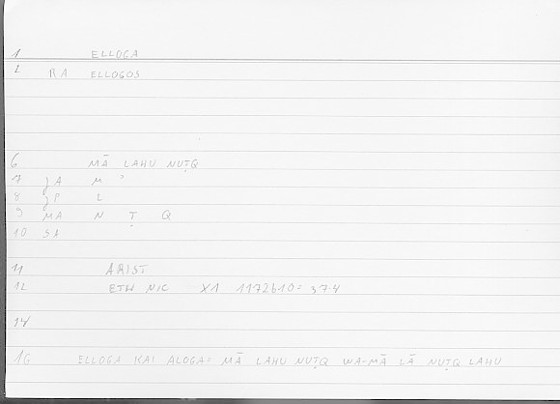 1 ELLOGA
2 RA ELLOGOS
6 MĀ LAHU NUṬQ
7 jA M ʾ
8 jP L
9 MA N Ṭ Q
10 SA
11 ARIST
12 ETH NIC X1 1172b10: 37.4
14
16 ELLOGA KAI ALOGA: MĀ LAHU NUṬQ WA-MĀ LĀ NUṬQ LAHU